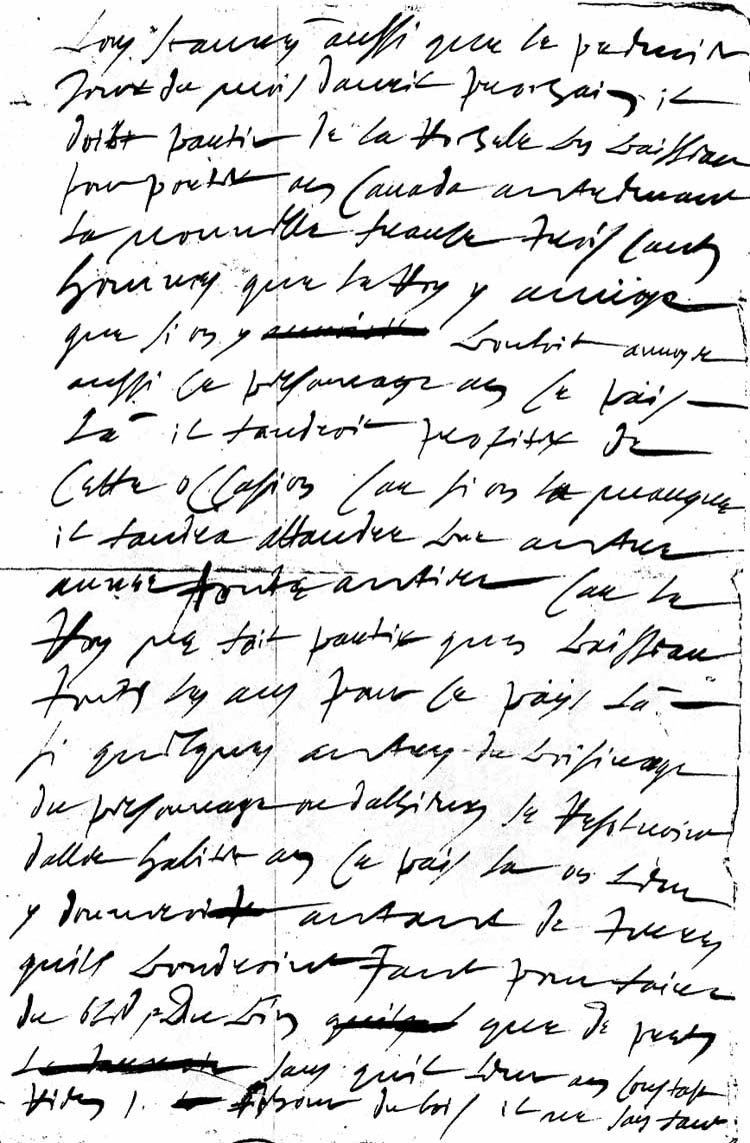 Vous scaurez aussi que le premier
Jour du mois davril prochain il
doibt partir de la Rochele un vaisseau
pour porter en Canada autrement
La nouvelle france trois cents
hommes que le Roy y anvoye
que si on y vouloit anvoyer
aussi ce personnage en ce pais
La il faudroit profiter de
Cette occasion Car si on la manque
il faudra attandre une autre
annee toute antiere Car le
Roy ne fait partir quun vaisseau
Touts les ans pour ce pais La
si quelques autres du voisinage
du personnage ou dalheurs se
daller habiter en ce pais La on Leur
y autant de Terres
quils voudroint Tant pour faire
du bled du vin que de prets
sans quil Leur en coustast
Rien du bois il ne sans faut